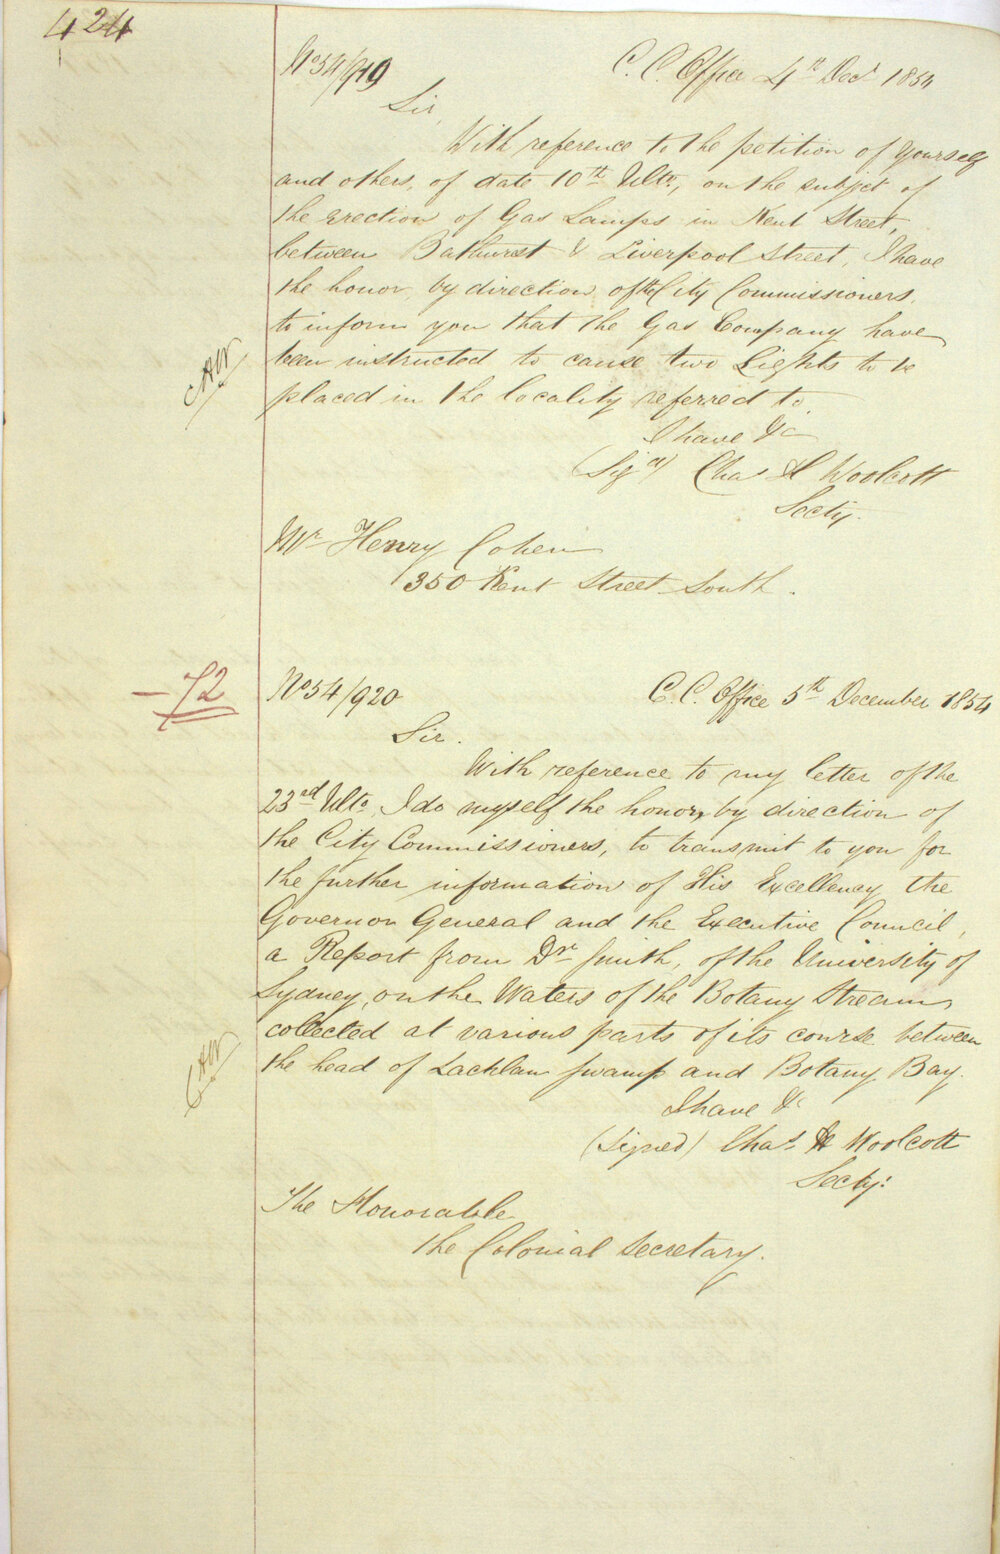 424
No 54/919
C. C. Office 4th Decr 1854
Sir,
With reference to the petition of yourself
and others, of date 10th Ulto, on the subject of
the erection of Gas Lamps in Kent Street,
between Bathurst & Liverpool Street, I have
the honor, by direction of the City Commissioners,
to inform you that the Gas Company have
been instructed to cause two Lights to be
placed in the locality referred to.
CHW
I have &c
(Sigd) Chas H Woolcott
Secty.
Mr Henry Cohen
350 Kent Street South.
- 72
No 54/920
C. C. Office 5th December 1854
Sir.
With reference to my letter of the
23rd Ulto, I do myself the honor, by direction of
the City Commissioners, to transmit to you for
the further information of His Excellency the
Governor General and the Executive Council,
a Report from Dr Smith, of the University of
Sydney, on the Waters of the Botany Stream
collected at various parts of its course between
the head of Lachlan Swamp and Botany Bay.
CHW
I have &c
(Signed) Chas H Woolcott
Secty:
The Honorable
the Colonial Secretary.